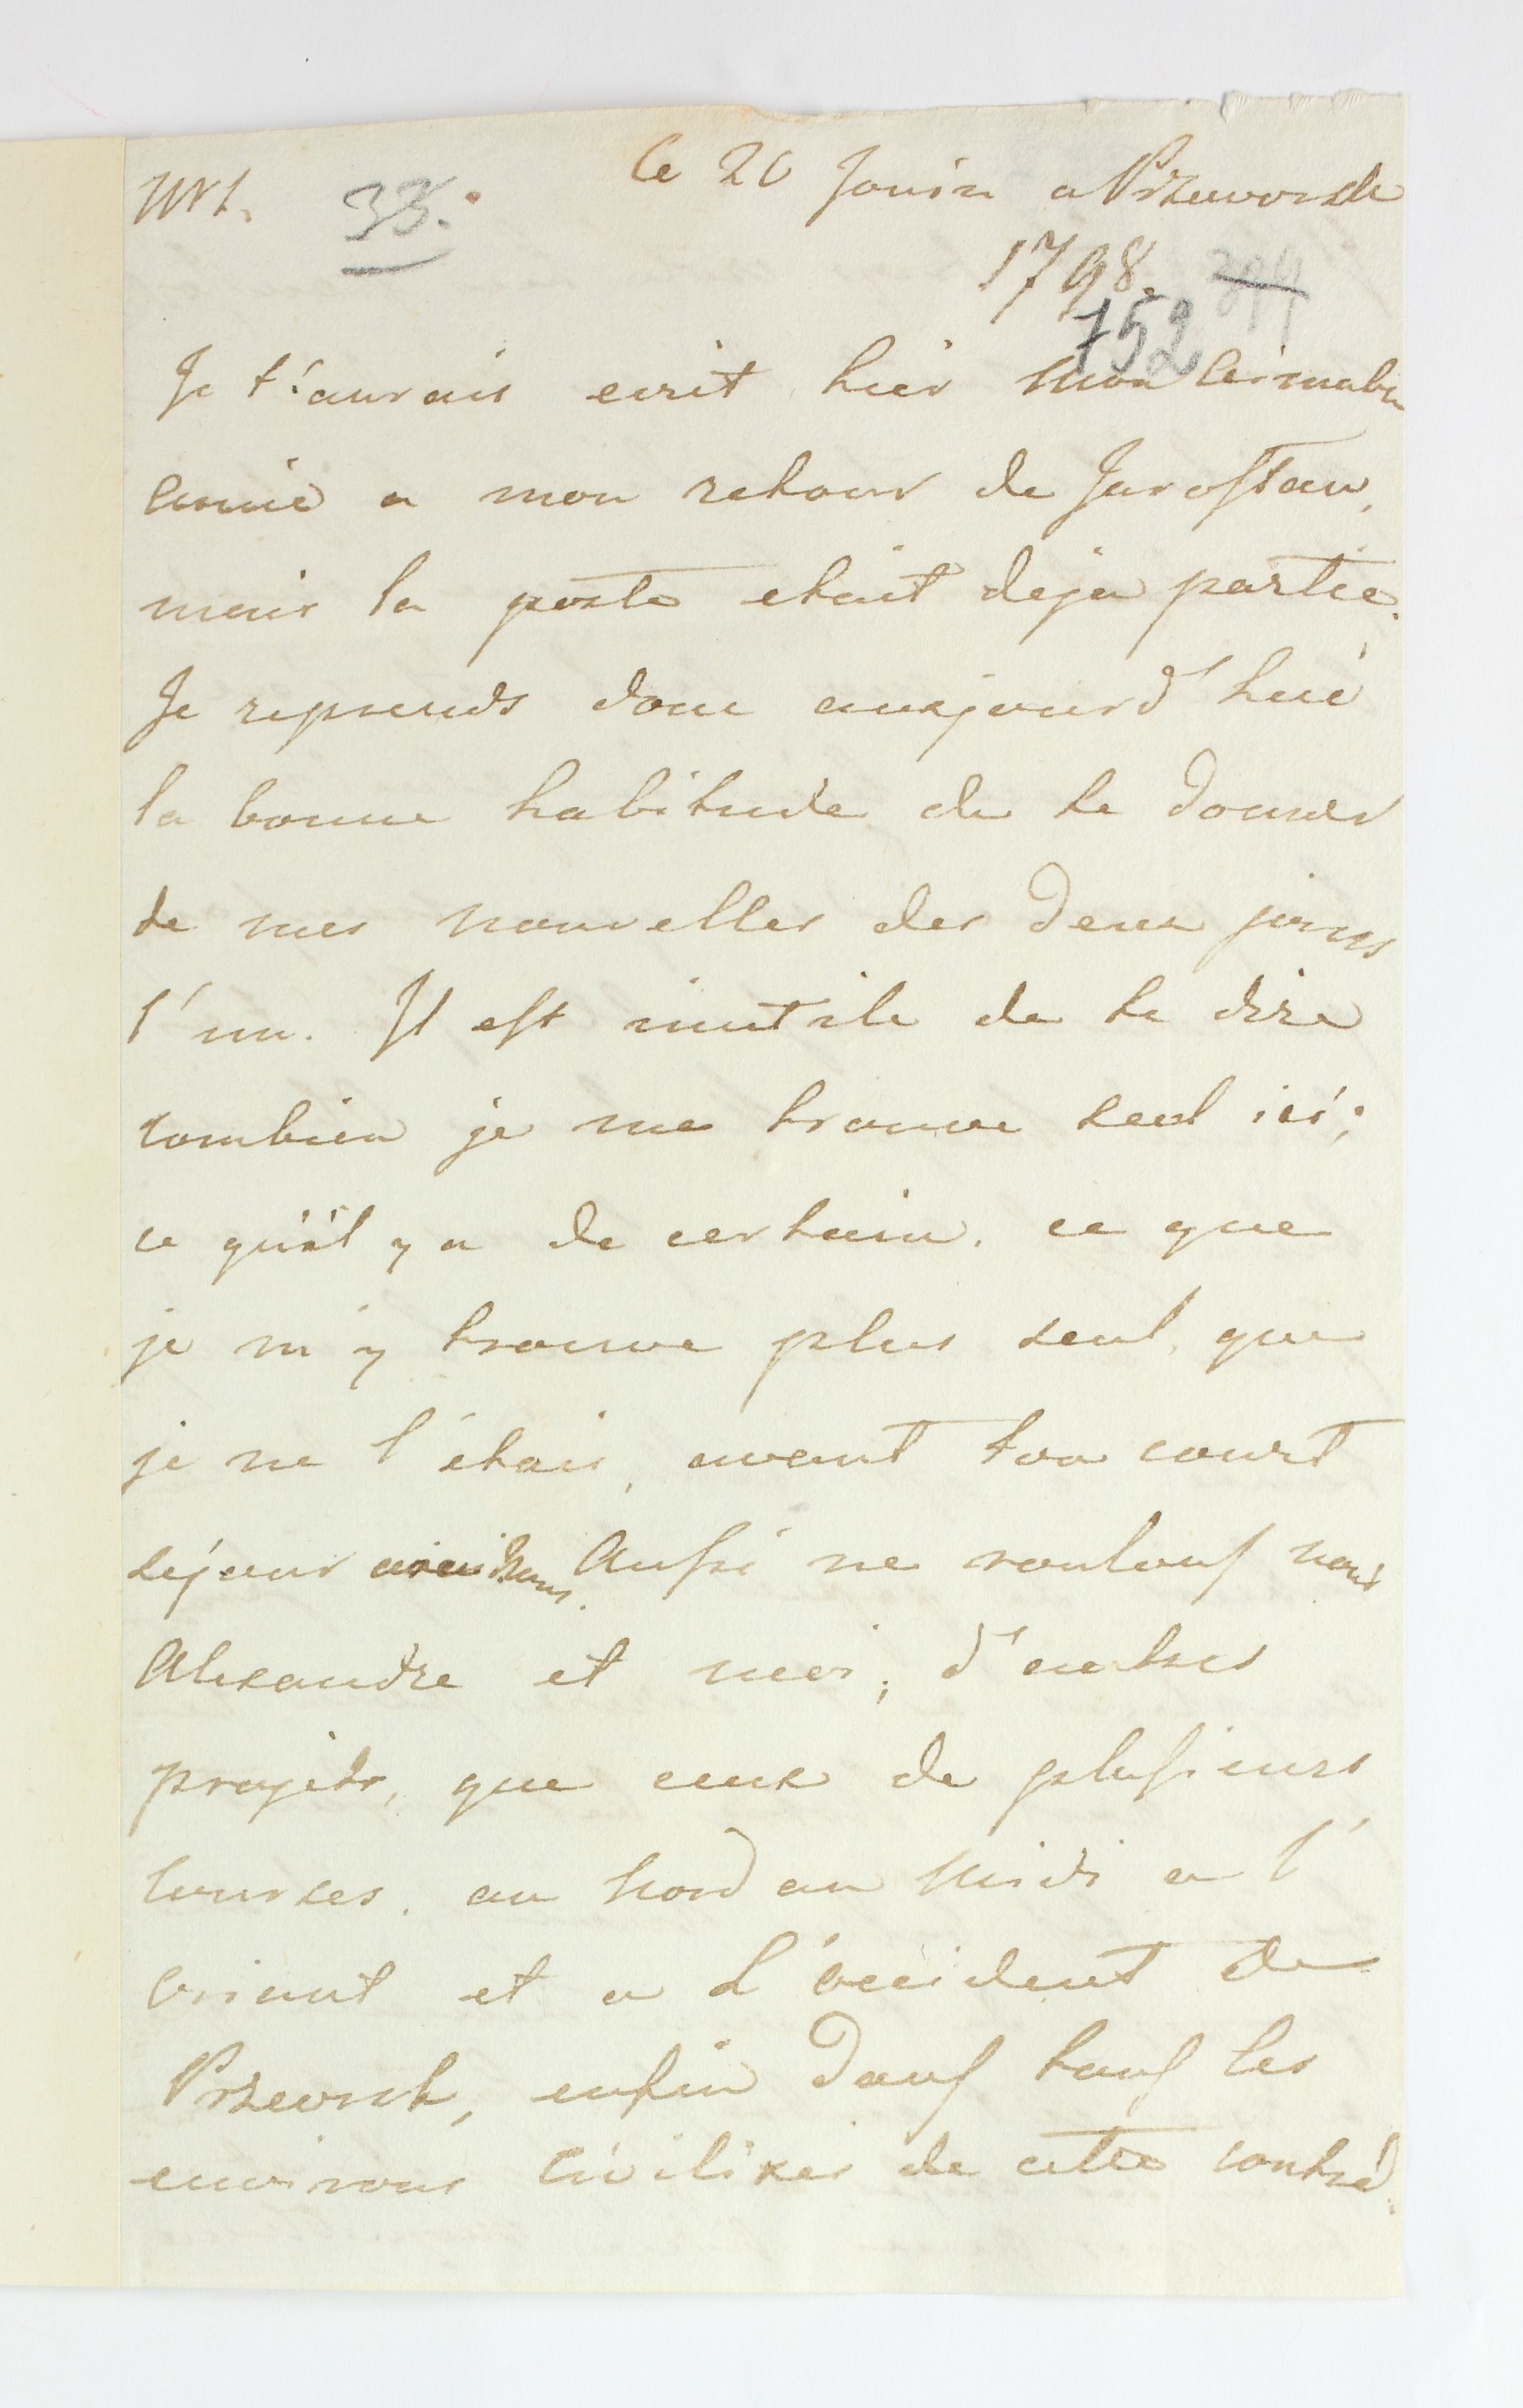 Nr 1. 33. le 20 Jouin a Przeworsk
1798. 394
752
Je t'aurais ecrit hier mon aimable
amie a mon retour de Jaroslau,
mais la poste etait deja partie.
Je reprends donc aujourd'hui
la bonne habitude de te donner
de mes nouvelles des deux jours
l'un. Il est inutile de te dire
combien je me trouve seul ici;
ce qu'il y a de certain, ce que
je m'y trouve plus seul, que
je ne l'étais, avant ton court
sejour Aussi ne roulons nous
Alexandre et moi, d'autres
projets, que ceux de plusieurs
courses, au Nord au Midi a l'
orient et a L'occident de
Przeorsk, enfin dans tous les
environs civilisés de cette contrée.